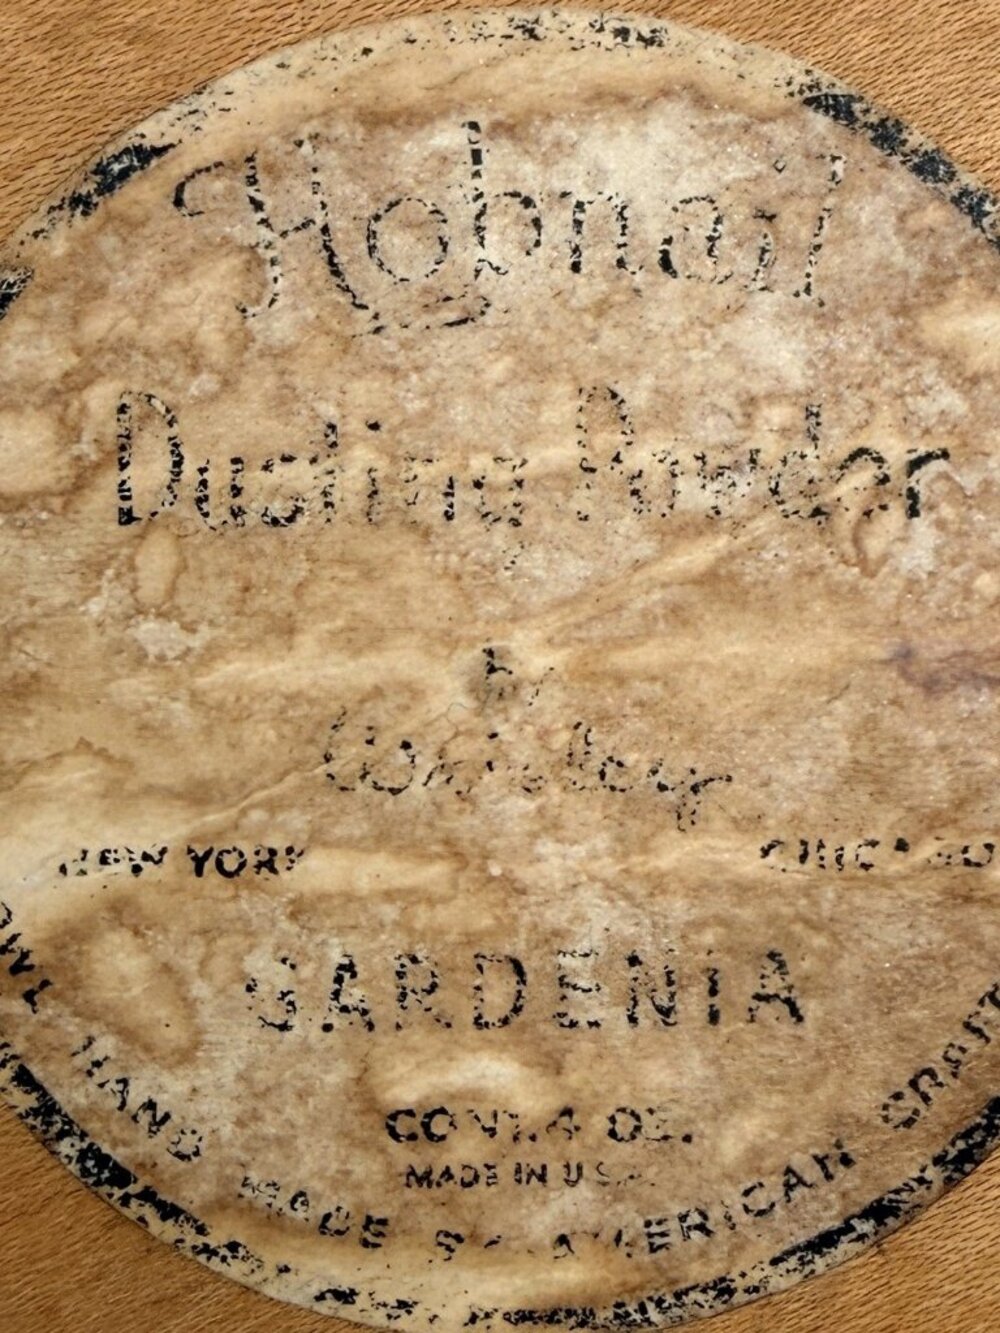 Hobnail
Dusting Powder
by
Wrisley
NEW YORK
CHICAGO
GARDENIA
CONT. 4 OZ.
MADE IN U.S.A.
HAND MADE BY AMERICAN